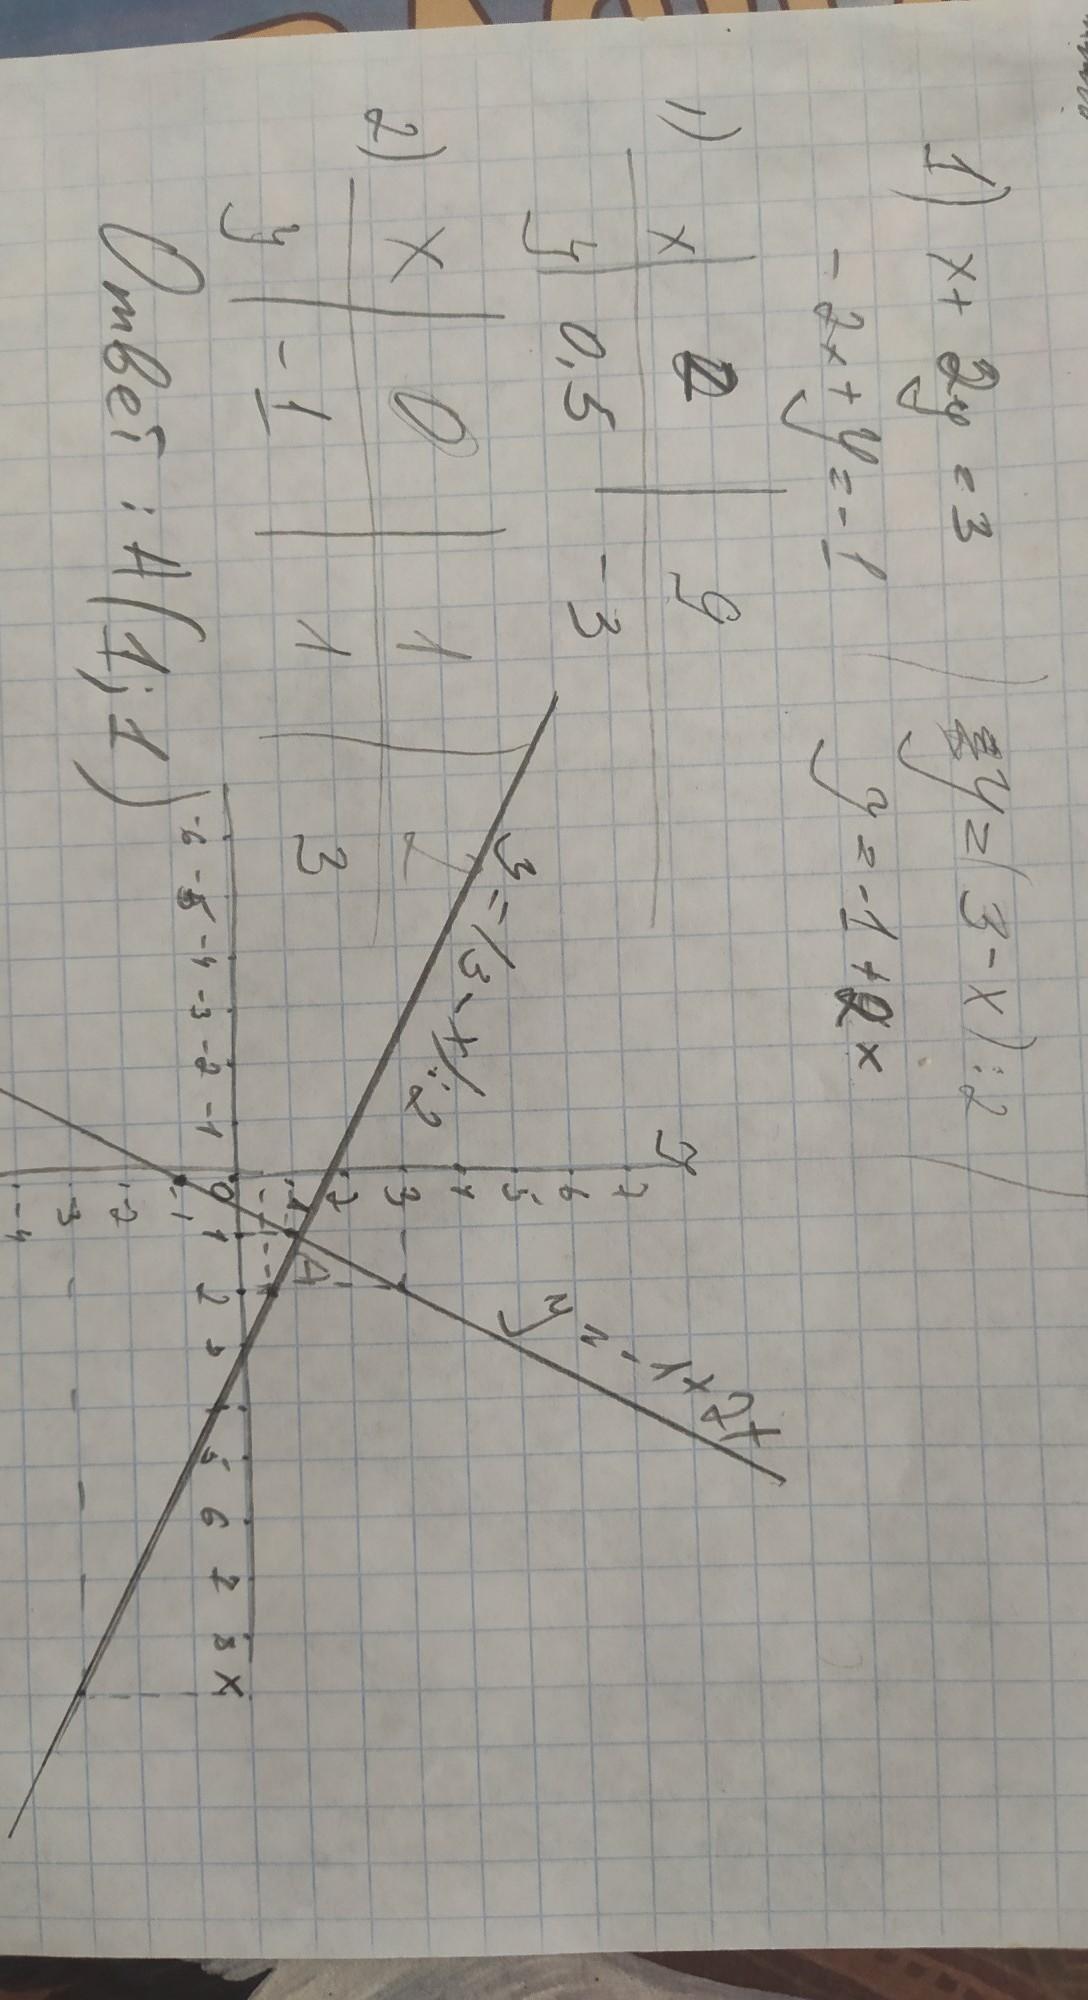 1) x + 2y = 3 y = (3 - x) : 2
-2x + y = -1 y = -1 + 2x
1) x 2 9
y 0,5 -3
2) x 0 1 2
y -1 1 3
Ответ: A(1; 1)
y
7
6
5
4
3
2
1
y = (3 - x) : 2
y = -1 + 2x
A
-6 -5 -4 -3 -2 -1 0 1 2 3 4 5 6 7 8 x
-1
-2
-3
-4